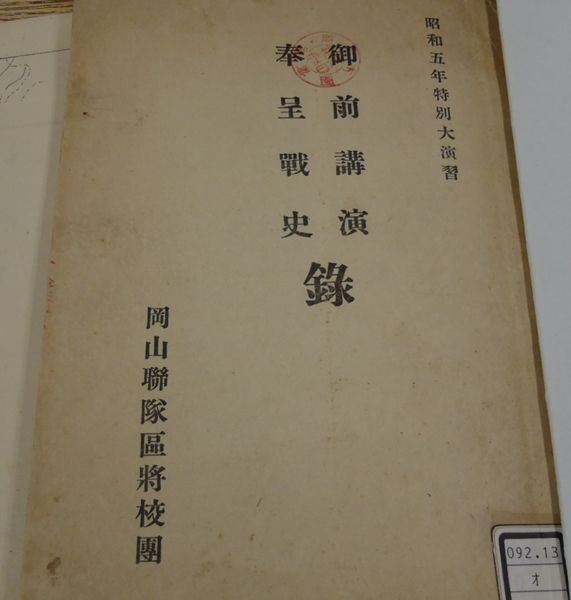 昭和五年特別大演習
御前講演
奉呈戰史
錄
岡山聯隊區將校團
092.13
オ